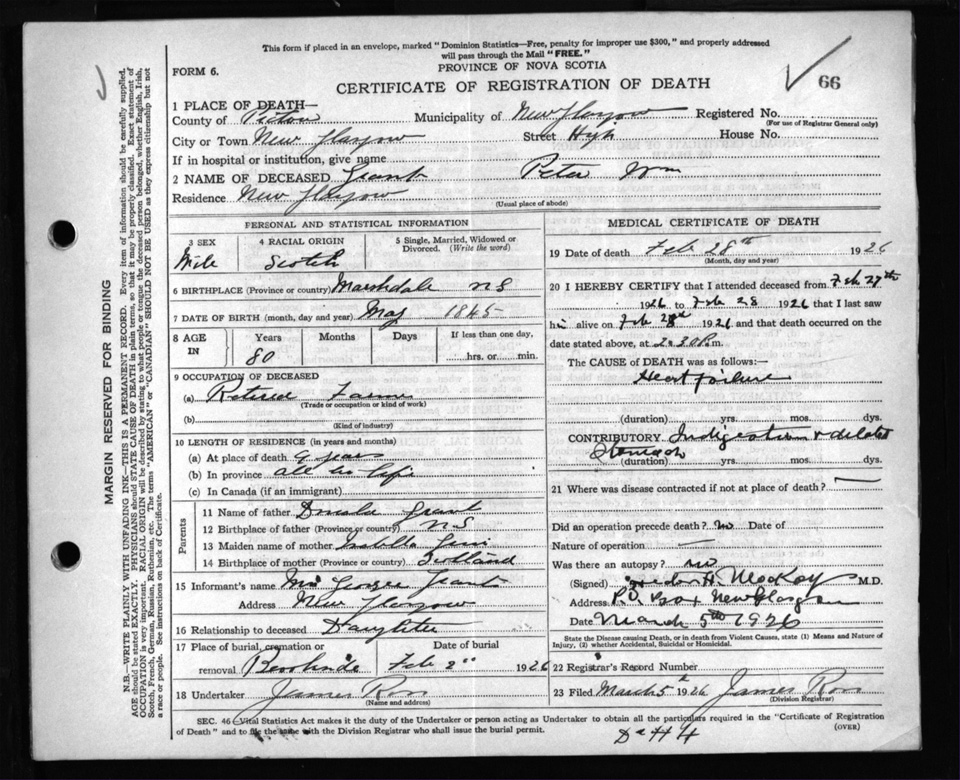 This form if placed in an envelope, marked "Dominion Statistics—Free, penalty for improper use $300," and properly addressed
will pass through the Mail "FREE."
PROVINCE OF NOVA SCOTIA
FORM 6.
CERTIFICATE OF REGISTRATION OF DEATH
66
1 PLACE OF DEATH—
County of Pictou Municipality of New Glasgow Registered No.
(For use of Registrar General only)
City or Town New Glasgow Street High House No.
If in hospital or institution, give name
2 NAME OF DECEASED Grant Peter Wm
Residence New Glasgow
(Usual place of abode)
PERSONAL AND STATISTICAL INFORMATION
3 SEX 4 RACIAL ORIGIN 5 Single, Married, Widowed or Divorced. (Write the word)
Scotch
6 BIRTHPLACE (Province or country) Marshdale N S
7 DATE OF BIRTH (month, day and year) May 1845
8 AGE IN Years Months Days If less than one day,
80 hrs. or min.
9 OCCUPATION OF DECEASED
(a) Retired Farmer
(Trade or occupation or kind of work)
(b)
(Kind of industry)
10 LENGTH OF RESIDENCE (in years and months)
(a) At place of death 9 years
(b) In province all his life
(c) In Canada (if an immigrant)
Parents
11 Name of father Donald Grant
12 Birthplace of father (Province or country) N S
13 Maiden name of mother Isabella
14 Birthplace of mother (Province or country) Scotland
15 Informant's name Mrs George Grant
Address New Glasgow
16 Relationship to deceased Daughter
17 Place of burial, cremation or Date of burial
removal Feb 1926
18 Undertaker James Ross
(Name and address)
MEDICAL CERTIFICATE OF DEATH
19 Date of death Feb 28th 1926
(Month, day and year)
20 I HEREBY CERTIFY that I attended deceased from Feb 27th
1926 to Feb 28 1926 that I last saw
him alive on Feb 28th 1926 and that death occurred on
date stated above, at 2:30 P.m.
The CAUSE of DEATH was as follows:—
Heart failure
(duration) yrs. mos. dys.
CONTRIBUTORY Indigestion & dilated
Stomach
(duration) yrs. mos. dys.
21 Where was disease contracted if not at place of death? —
Did an operation precede death? no Date of
Nature of operation —
Was there an autopsy? no
(Signed) H. MacKay M.D.
Address P.O. Box New Glasgow
Date March 5th 1926
State the Disease causing Death, or in death from Violent Causes, state (1) Means and Nature of
Injury, (2) whether Accidental, Suicidal or Homicidal.
22 Registrar's Record Number
23 Filed March 5th 1926 James Ross
(Division Registrar)
SEC. 46—Vital Statistics Act makes it the duty of the Undertaker or person acting as Undertaker to obtain all the particulars required in the "Certificate of Registration
of Death" and to file the same with the Division Registrar who shall issue the burial permit.
(OVER)
MARGIN RESERVED FOR BINDING
N.B.—WRITE PLAINLY WITH UNFADING INK—THIS IS A PERMANENT RECORD. Every item of information should be carefully supplied.
AGE should be stated EXACTLY. PHYSICIANS should STATE CAUSE OF DEATH in plain terms, so that it may be properly classified. Exact statement of
OCCUPATION is very important. RACIAL ORIGIN will be described by stating to what people or tongue the deceased person belonged, whether English, Irish,
Scotch, French, German, Russian, Ruthenian, etc. The terms "AMERICAN" or "CANADIAN" SHOULD NOT BE USED as they express citizenship but not
a race or people. See instructions on back of Certificate.